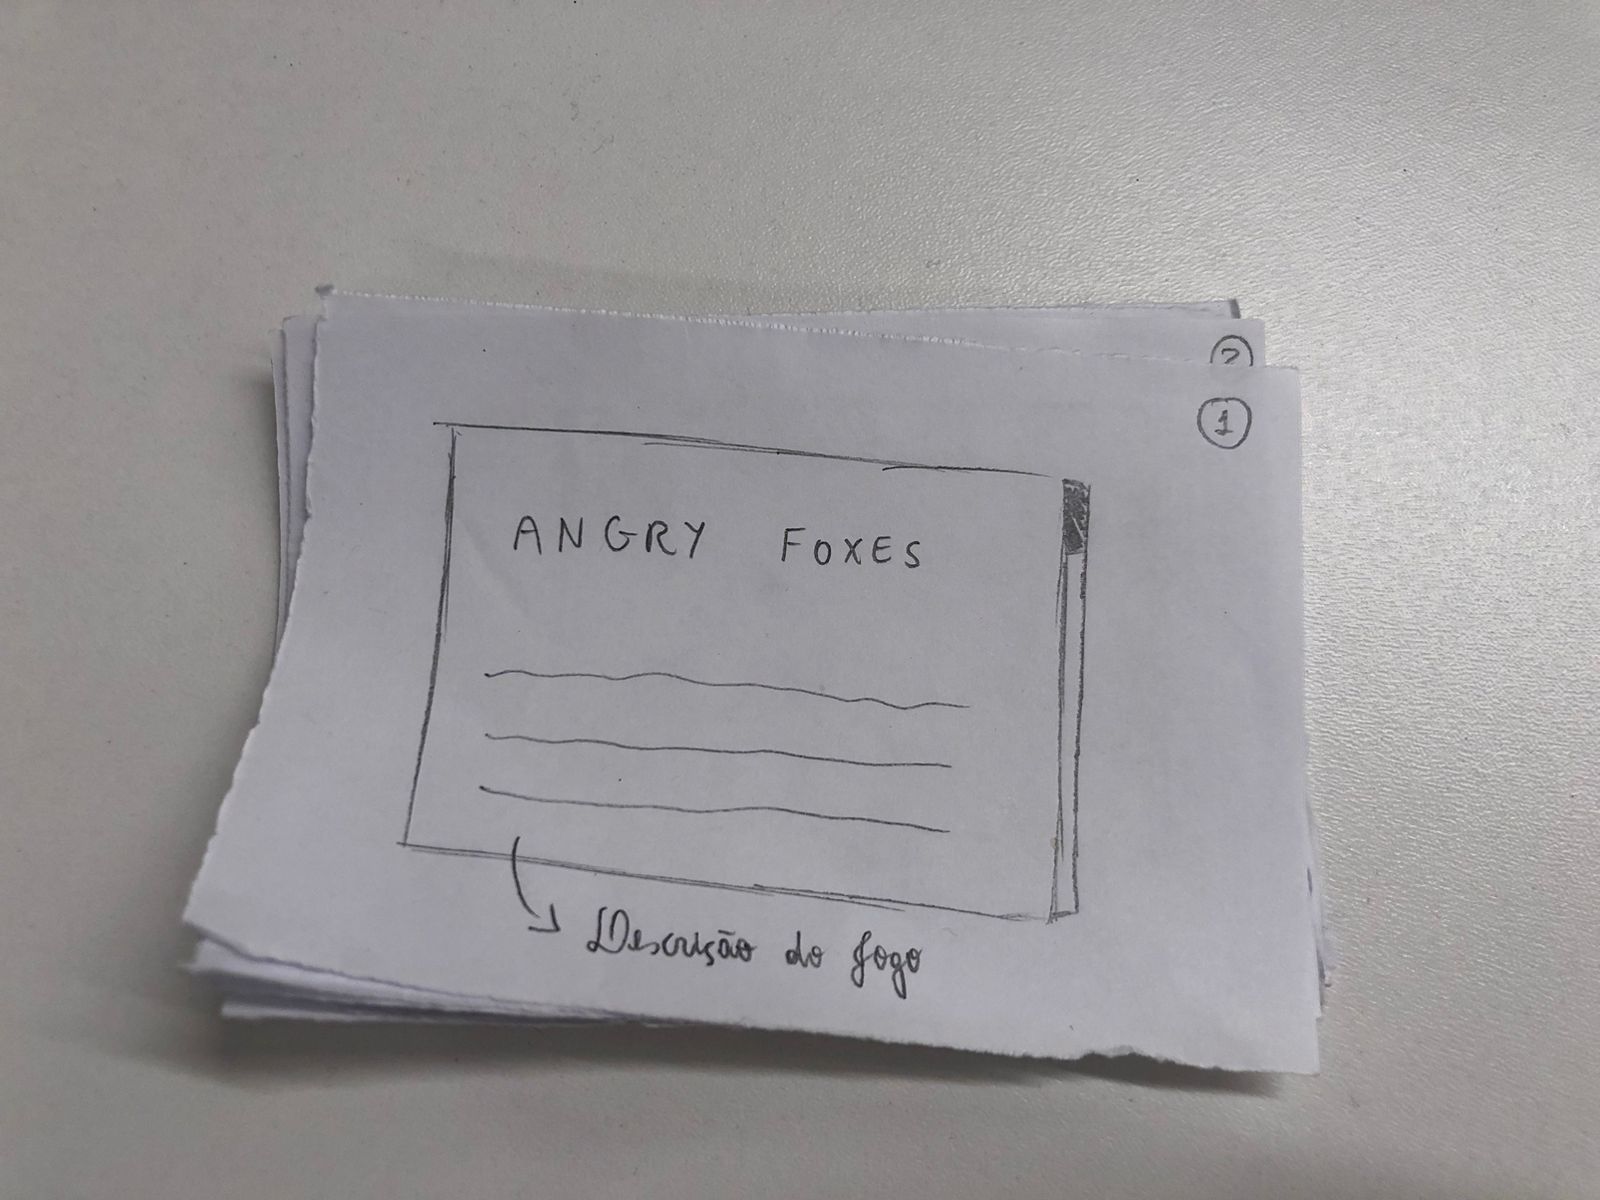 2
1
ANGRY FOXES
Descrição do jogo